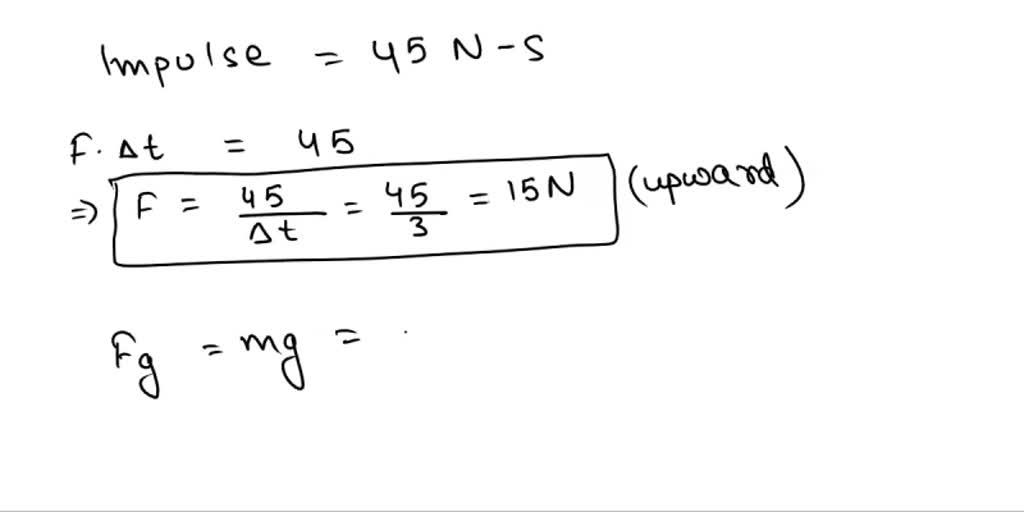 Impulse = 45 N-S
F. Δt = 45
⇒ F = 45/Δt = 45/3 = 15N (upward)
Fg = mg =